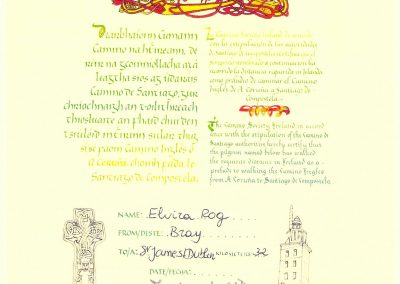 Dearbhaíonn Cumann
Camino na hÉireann, de
réir na gcoinníollacha atá
leagtha síos ag údarais
Camino de Santiago, gur
chríochnaigh an t-oilithreach
thíosluaite an fhaid chuí den
tsiúlóid in Éirinn sular thug
sí/sé faoin Camino Inglés ó
A Coruña chomh fada le
Santiago de Compostela.
La Camino Society Ireland de acuerdo
con la estipulación de las autoridades
de Santiago de Compostela certifica que el
peregrino mencionado a continuación ha
recorrido la distancia requerida en Irlanda
como preludio de caminar el Camino
Inglés de A Coruña a Santiago de
Compostela.
The Camino Society Ireland in accord
ance with the stipulation of the Camino de
Santiago authorities hereby certify that
the pilgrim named below has walked
the requisite distance in Ireland as a
prelude to walking the Camino Inglés
from A Coruña to Santiago de Compostela.
NAME: Elvira Rog
FROM/DESTE: Bray
TO/A: St James Dublin KILOMETERS: 32
DATE/FECHA: